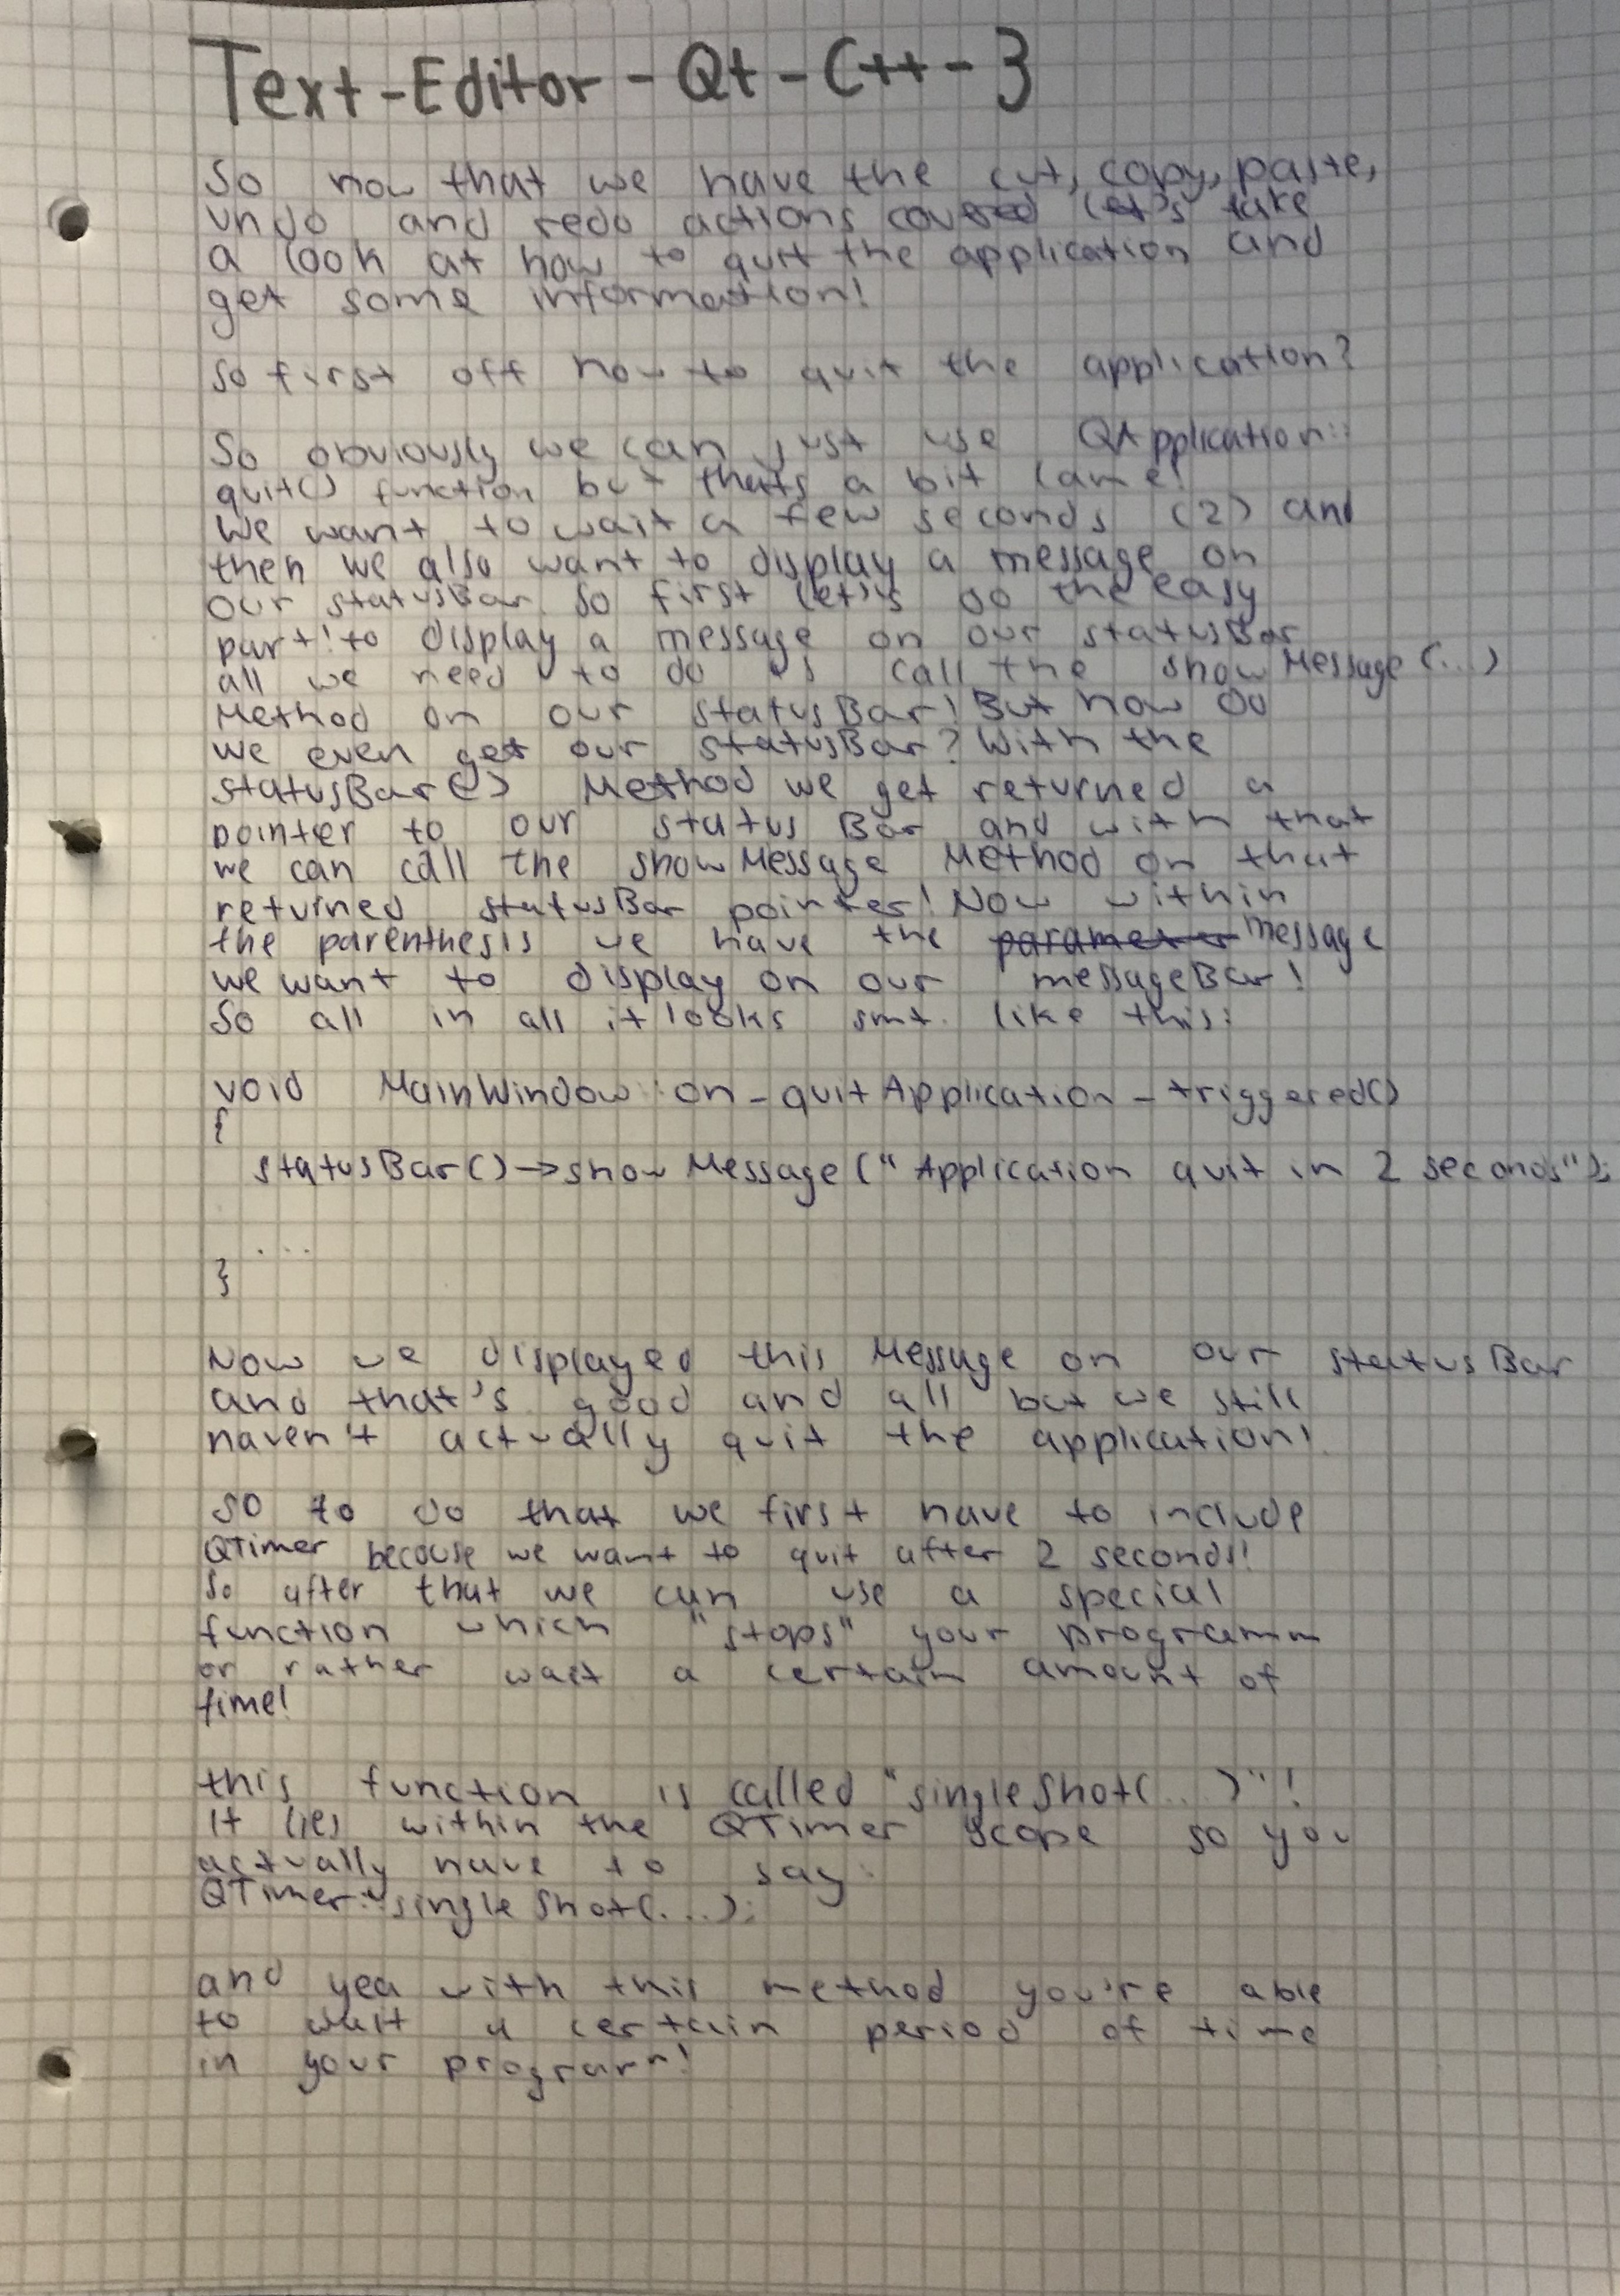 Text-Editor-Qt-C++-3
So now that we have the cut, copy, paste,
undo and redo actions covered let's take
a look at how to quit the application and
get some information!
So first off how to quit the application?
So obviously we can just use QApplication::
quit() function but thats a bit lame!
We want to wait a few seconds (2) and
then we also want to display a message on
our statusBar. So first let's do the easy
part! to display a message on our statusBar
all we need to do is call the showMessage(...)
Method on our statusBar! But how do
we even get our statusBar? With the
statusBar() Method we get returned a
pointer to our statusBar and with that
we can call the showMessage Method on that
returned statusBar pointer! Now within
the parenthesis we have the parameter message
we want to display on our messageBar!
So all in all it looks smt. like this:
void MainWindow::on_quitApplication_triggered()
{
statusBar()->showMessage("Application quit in 2 seconds");
...
}
Now we displayed this Message on our statusBar
and that's good and all but we still
haven't actually quit the application!
so to do that we first have to include
QTimer because we want to quit after 2 seconds!
So after that we can use a special
function which "stops" your programm
or rather wait a certain amount of
time!
this function is called "singleShot(...)"!
It lies within the QTimer scope so you
actually have to say:
QTimer::singleShot(...);
and yea with this method you're able
to wait a certain period of time
in your program!